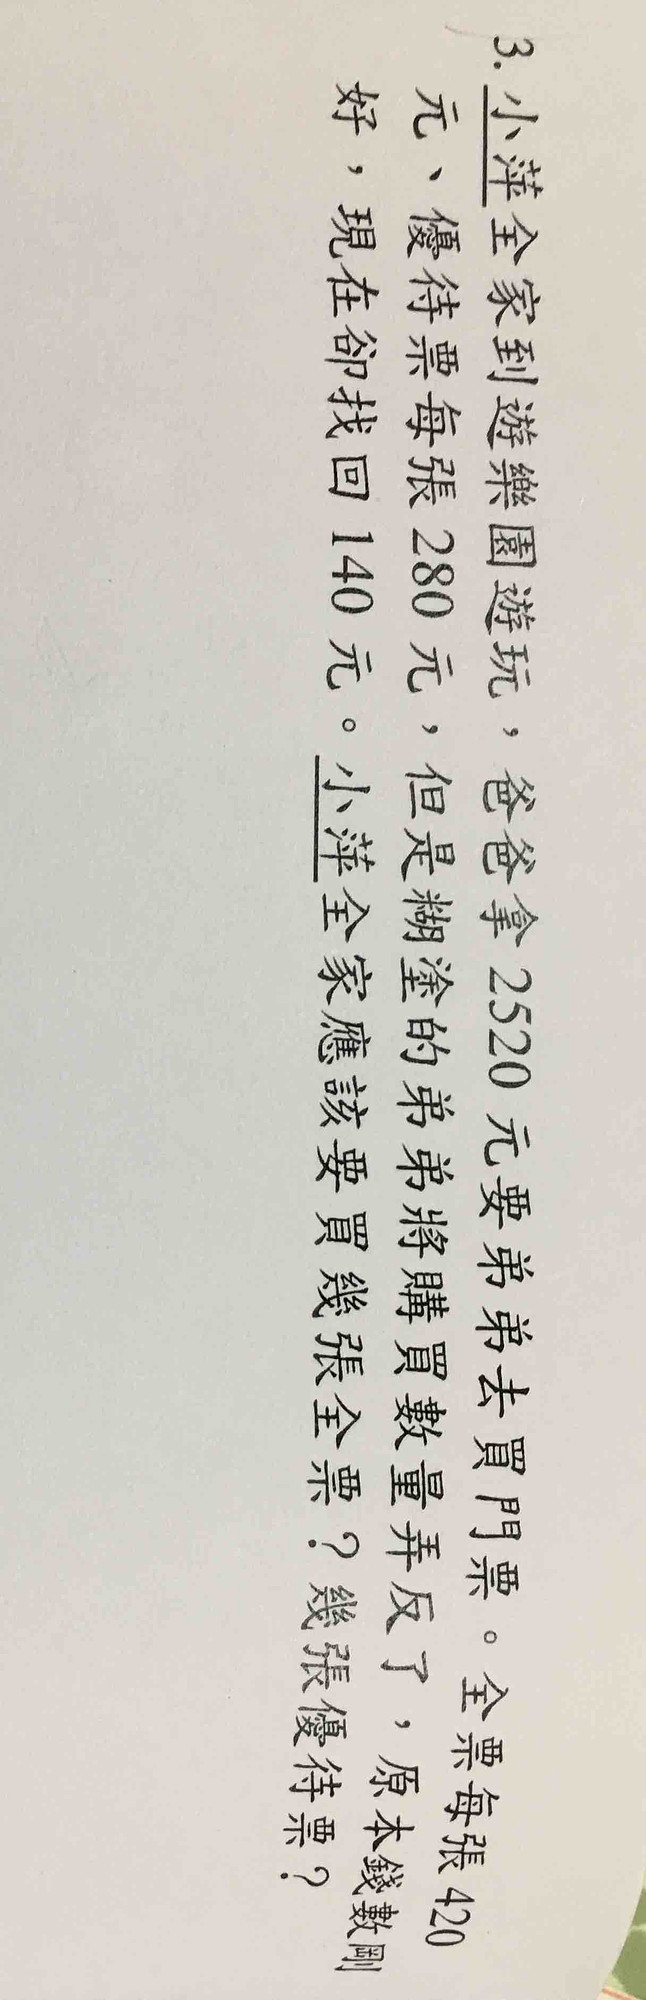 3. 小萍全家到遊樂園遊玩，爸爸拿2520元要弟弟去買門票。全票每張420
元、優待票每張280元，但是糊塗的弟弟將購買數量弄反了，原本錢數剛
好，現在卻找回140元。小萍全家應該要買幾張全票？幾張優待票？